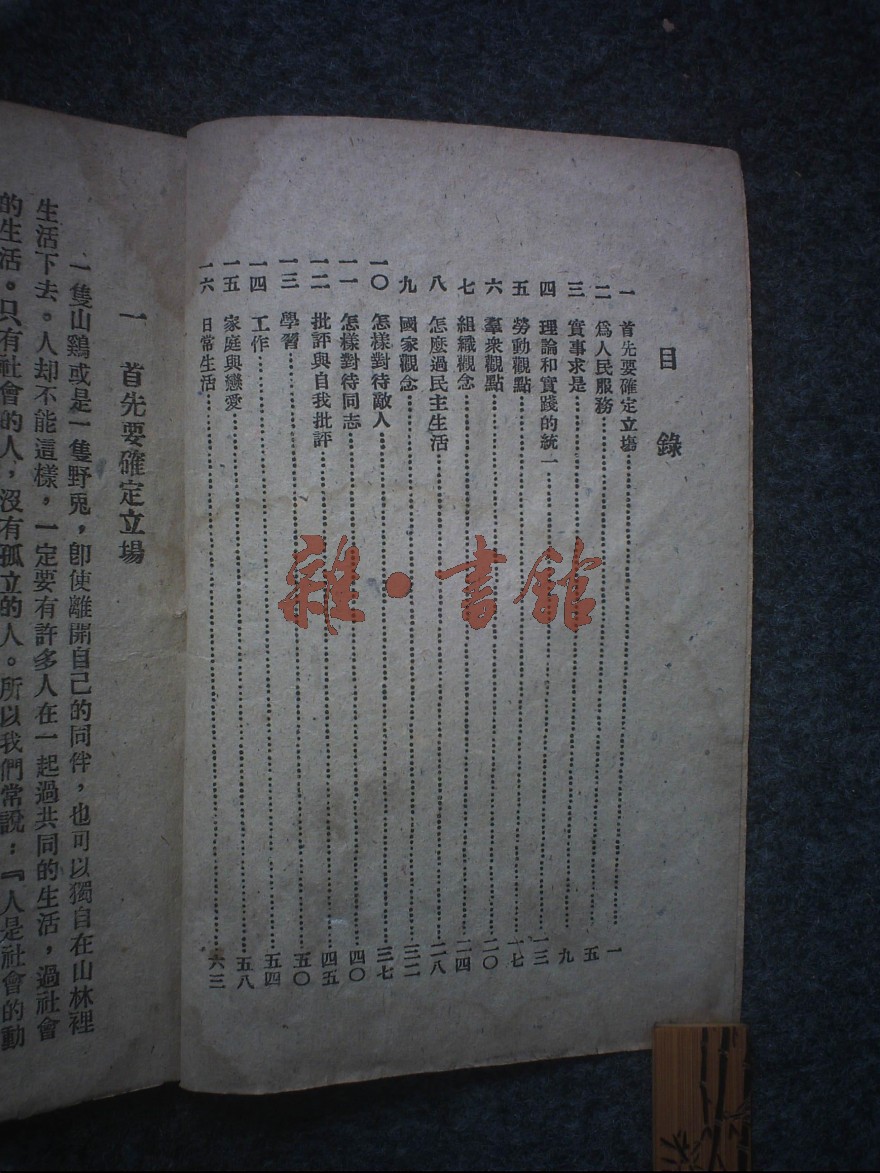 目錄
一 首先要確定立場……一
二 爲人民服務……五
三 實事求是……九
四 理論和實踐的統一……一三
五 勞動觀點……一七
六 羣衆觀點……二〇
七 組織觀念……二四
八 怎麼過民主生活……二八
九 國家觀念……三二
一〇 怎樣對待敵人……三七
一一 怎樣對待同志……四〇
一二 批評與自我批評……四五
一三 學習……五〇
一四 工作……五四
一五 家庭與戀愛……五八
一六 日常生活……六三
一 首先要確定立場
一隻山鷄或是一隻野兎，卽使離開自己的同伴，也可以獨自在山林裡
生活下去。人却不能這樣，一定要有許多人在一起過共同的生活，過社會
的生活。只有社會的人，沒有孤立的人。所以我們常說：『人是社會的動
雜·書館